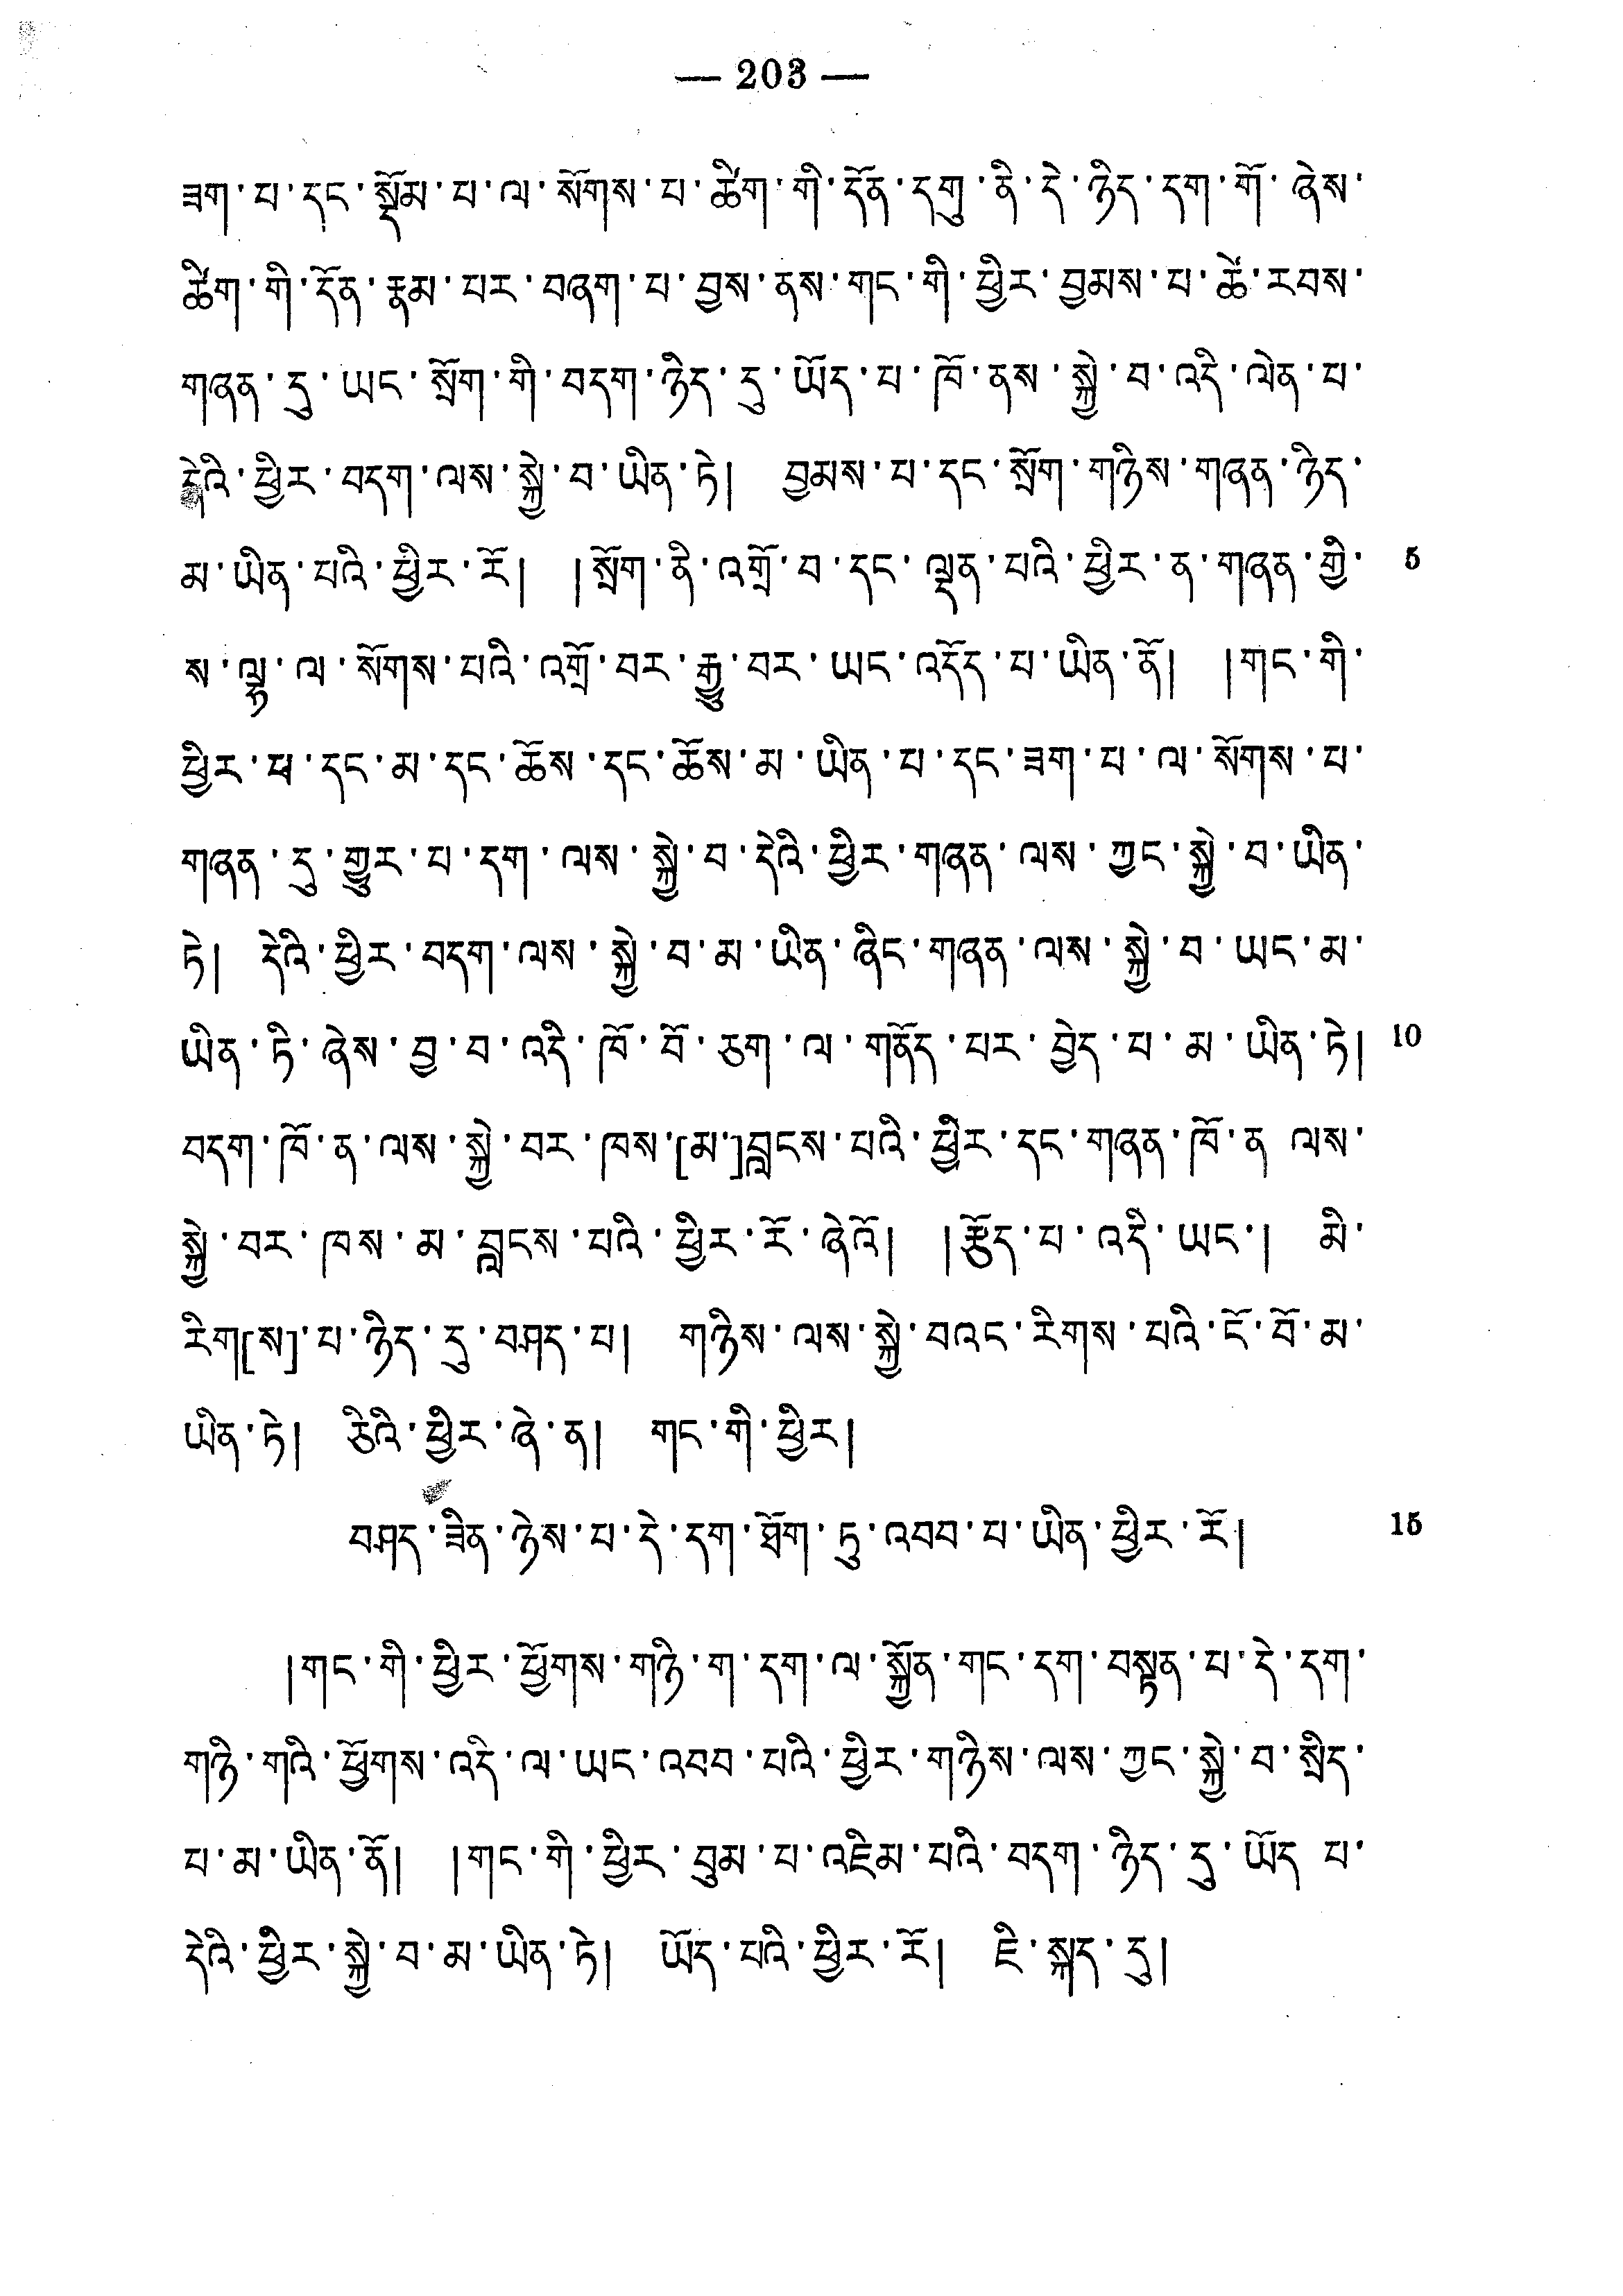 — 203 —
ཟག་པ་དང་སྡོམ་པ་ལ་སོགས་པ་ཚིག་གི་དོན་དགུ་ནི་དེ་ཉིད་དག་གོ་ཞེས་
ཚིག་གི་དོན་རྣམ་པར་བཞག་པ་བྱས་ནས་གང་གི་ཕྱིར་བྱམས་པ་ཚེ་རབས་
གཞན་དུ་ཡང་སྲོག་གི་བདག་ཉིད་དུ་ཡོད་པ་ཁོ་ནས་སྐྱེ་བ་འདི་ལེན་པ་
དེའི་ཕྱིར་བདག་ལས་སྐྱེ་བ་ཡིན་ཏེ། བྱམས་པ་དང་སྲོག་གཉིས་གཞན་ཉིད་
མ་ཡིན་པའི་ཕྱིར་རོ། །སྲོག་ནི་འགྲོ་བ་དང་ལྡན་པའི་ཕྱིར་ན་གཞན་གྱི་ 5
ས་ལྷ་ལ་སོགས་པའི་འགྲོ་བར་རྒྱུ་བར་ཡང་འདོད་པ་ཡིན་ནོ། །གང་གི་
ཕྱིར་ཕ་དང་མ་དང་ཆོས་དང་ཆོས་མ་ཡིན་པ་དང་ཟག་པ་ལ་སོགས་པ་
གཞན་དུ་གྱུར་པ་དག་ལས་སྐྱེ་བ་དེའི་ཕྱིར་གཞན་ལས་ཀྱང་སྐྱེ་བ་ཡིན་
ཏེ། དེའི་ཕྱིར་བདག་ལས་སྐྱེ་བ་མ་ཡིན་ཞིང་གཞན་ལས་སྐྱེ་བ་ཡང་མ་
ཡིན་ཏི་ཞེས་བྱ་བ་འདི་ཁོ་བོ་ཅག་ལ་གནོད་པར་བྱེད་པ་མ་ཡིན་ཏེ། 10
བདག་ཁོ་ན་ལས་སྐྱེ་བར་ཁས་[མ་]བླངས་པའི་ཕྱིར་དང་གཞན་ཁོ་ན ལས་
སྐྱེ་བར་ཁས་མ་བླངས་པའི་ཕྱིར་རོ་ཞེའོ། །རྩོད་པ་འདི་ཡང་། མི་
རིག[ས]་པ་ཉིད་དུ་བཤད་པ། གཉིས་ལས་སྐྱེ་བའང་རིགས་པའི་ངོ་བོ་མ་
ཡིན་ཏེ། ཅིའི་ཕྱིར་ཞེ་ན། གང་གི་ཕྱིར།
བཤད་ཟིན་ཉེས་པ་དེ་དག་ཐོག་ཏུ་འབབ་པ་ཡིན་ཕྱིར་རོ། 15
།གང་གི་ཕྱིར་ཕྱོགས་གཉི་ག་དག་ལ་སྐྱོན་གང་དག་བསྟན་པ་དེ་དག་
གཉི་གའི་ཕྱོགས་འདི་ལ་ཡང་འབབ་པའི་ཕྱིར་གཉིས་ལས་ཀྱང་སྐྱེ་བ་སྲིད་
པ་མ་ཡིན་ནོ། །གང་གི་ཕྱིར་བུམ་པ་འཇིམ་པའི་བདག་ཉིད་དུ་ཡོད པ་
དེའི་ཕྱིར་སྐྱེ་བ་མ་ཡིན་ཏེ། ཡོད་པའི་ཕྱིར་རོ། ཇི་སྐད་དུ།